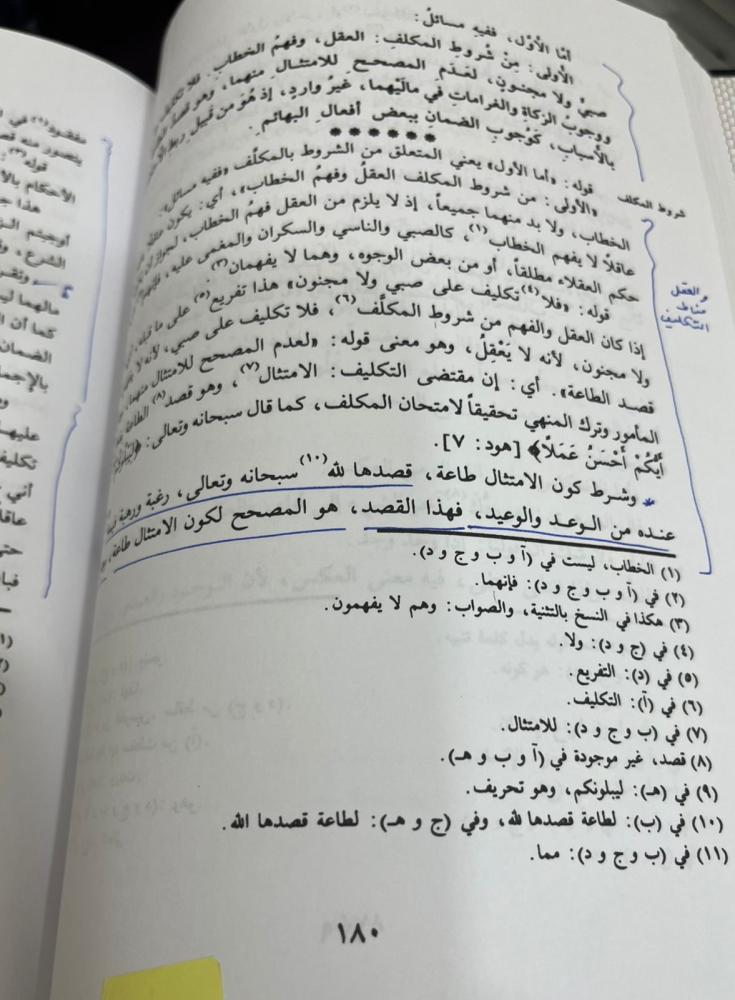 أمّا الأوّل، ففيه مسائلُ:
الأولى: مِنْ شُروطِ المكلفِ: العقل، وفهمُ الخطاب. فلا تكليف
صبيٍّ ولا مجنونٍ، لعَدَمِ المصحح للامتثال منهما، وهو قصد
ووجوبُ الزكاةِ والغرامات في مالَيْهما، غيرُ واردٍ، إذ هُوَ من قَبيل ربط
بالأسباب، كَوُجوبِ الضمانِ ببعض أفعال البهائم.
******
قوله: «أما الأول» يعني المتعلق من الشروط بالمكلَّف «ففيه مسائل»:
«الأولى: من شروط المكلف العقلُ وفهمُ الخطاب»، أي: يكون
الخطاب، ولا بد منهما جميعاً، إذ لا يلزم من العقل فهمُ الخطاب، لجواز أن
عاقلاً لا يفهم الخطاب(١)، كالصبي والناسي والسكران والمغمى عليه، فإنهم(٢)
حكم العقلاء مطلقاً، أو من بعض الوجوه، وهما لا يفهمان(٣).
قوله: «فلا(٤) تكليف على صبي ولا مجنون» هذا تفريع(٥) على ما قبله،
إذا كان العقل والفهم من شروط المكلَّف(٦)، فلا تكليف على صبي، لأنه لا
ولا مجنون، لأنه لا يَعْقِلُ، وهو معنى قوله: «لعدم المصحح للامتثال منهما،
قصد الطاعة». أي: إن مقتضى التكليف: الامتثال(٧)، وهو قصد(٨) الطاعة
المأمور وترك المنهي تحقيقاً لامتحان المكلف، كما قال سبحانه وتعالى: ﴿لِيَبْلُوَكُمْ
أَيُّكُمْ أَحْسَنُ عَمَلاً﴾ [هود: ٧].
* وشرط كون الامتثال طاعة، قصدها لله(١٠) سبحانه وتعالى، رغبة ورهبة
عنده من الوعد والوعيد، فهذا القصد، هو المصحح لكون الامتثال طاعة،
(١) الخطاب، ليست في (آ و ب و ج و د).
(٢) في (آ و ب و ج و د): فإنهما.
(٣) هكذا في النسخ بالتثنية، والصواب: وهم لا يفهمون.
(٤) في (ج و د): ولا.
(٥) في (د): التفريع.
(٦) في (آ): التكليف.
(٧) في (ب و ج و د): للامتثال.
(٨) قصد، غير موجودة في (آ و ب و هـ).
(٩) في (هـ): ليبلونكم، وهو تحريف.
(١٠) في (ب): لطاعة قصدها لله، وفي (ج و هـ): لطاعة قصدها الله.
(١١) في (ب و ج و د): مما.
١٨٠
شروط المكلف
والعقل
مناط
التكليف